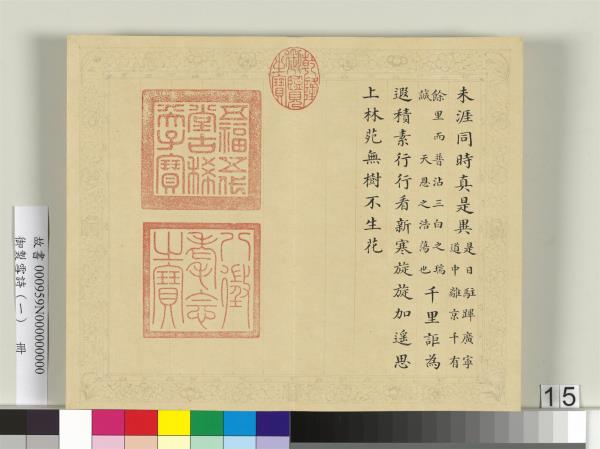 未涯同時真是異
是日駐蹕廣寧
道中離京千有
餘里而普沾三白之瑞
誠 天恩之浩蕩也
千里詎為
遐積素行行看新寒旋旋加遙思
上林苑無樹不生花
乾隆御覽之寶
五福五代
堂古稀
天子寶
八徵
耄念
之寶
故書 000959N000000000
御製雪詩（一） 冊
15